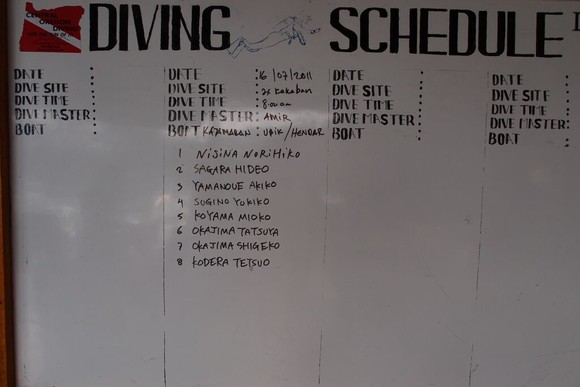 DIVING SCHEDULE
DATE :
DIVE SITE :
DIVE TIME :
DIVE MASTER :
BOAT :
DATE : 16/07/2011
DIVE SITE : 2x Kakaban
DIVE TIME : 8:00 am
DIVE MASTER : AMIR
BOAT KAKAMABAN : UDIK/HENDAR
1 NISINA NORIHIKO
2 SAGARA HIDEO
3 YAMANOUE AKIKO
4 SUGINO YUKIKO
5 KOYAMA MIOKO
6 OKAJIMA TATSUYA
7 OKAJIMA SHIGEKO
8 KODERA TETSUO
DATE :
DIVE SITE :
DIVE TIME :
DIVE MASTER :
BOAT :
DATE :
DIVE SITE :
DIVE TIME :
DIVE MASTER:
BOAT :